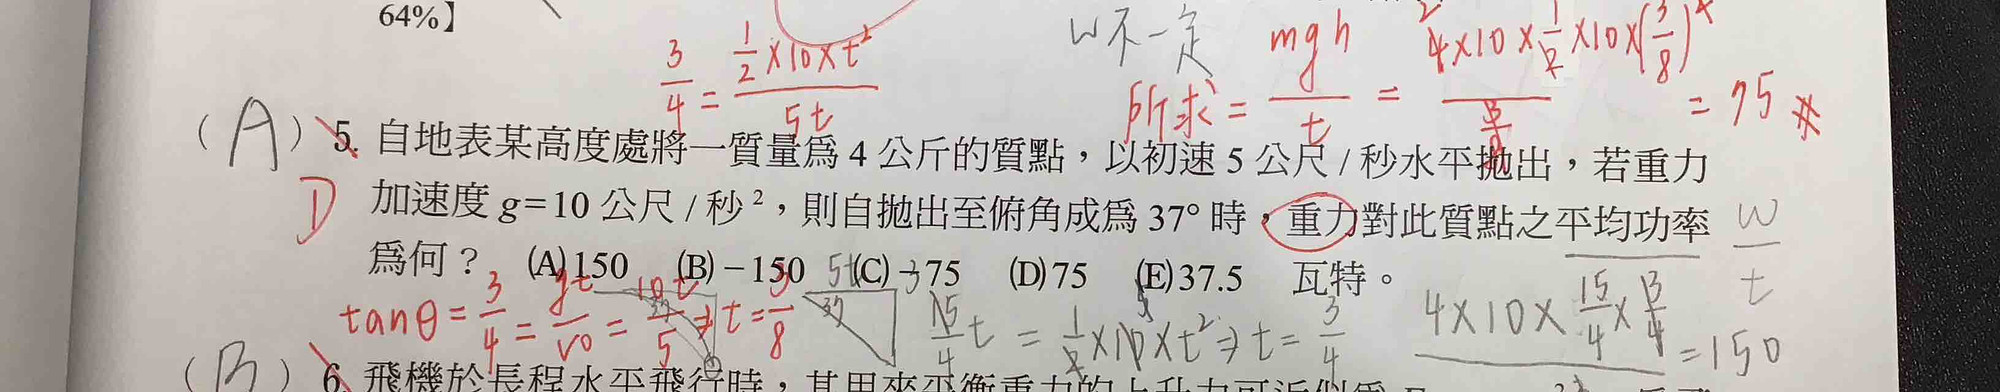 64%】
W不一定
3/4 = (1/2×10×t²)/5t
所求 = mgh/t = (4×10×1/2×10×(3/8)²)/(3/8) = 75 #
(A) 5. 自地表某高度處將一質量為 4 公斤的質點，以初速 5 公尺 / 秒水平拋出，若重力
D 加速度 g=10 公尺 / 秒²，則自拋出至俯角成為 37° 時，重力對此質點之平均功率 W/t
為何？ (A)150 (B)－150 (C)－75 (D)75 (E)37.5 瓦特。
5t 37
tanθ = 3/4 = gt/v0 = 10t/5 ⇒ t = 3/8
15/4 t = 1/2×10×t² ⇒ t = 3/4
4×10×15/4×3/4 = 150
(B) 6. 飛機於長程水平飛行時，其用來平衡重力的上升力可近似為